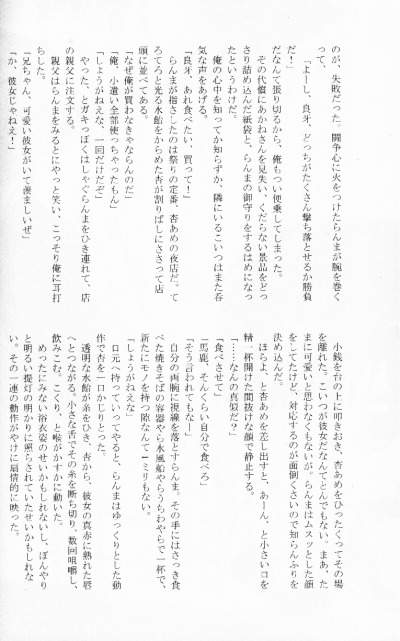 のが、失敗だった。闘争心に火をつけたらんまが腕を巻く
って、
「よーし、良牙、どっちがたくさん撃ち落とせるか勝負
だ！」
だなんて張り切るから、俺もつい便乗してしまった。
その代償にあかねさんを見失い、くだらない景品をどっ
さり詰め込んだ紙袋と、らんまの御守りをするはめになっ
たというわけだ。
俺の心中を知ってか知らずか、隣にいるこいつはまた呑
気な声をあげる。
「良牙、あれ食べたい、買って！」
らんまが指さしたのは祭りの定番、杏あめの夜店だ。て
ろてろと光る水飴をからめた杏が割りばしにささって店
頭に並べてある。
「なぜ俺が買わなきゃならんのだ」
「俺、小遣い全部使っちゃったもん」
「しょうがねえな、一回だけだぞ」
やった、とガキっぽくはしゃぐらんまを引き連れて、店
の親父に注文する。
親父はらんまをみるとにやっと笑い、こっそり俺に耳打
ちした。
「兄ちゃん、可愛い彼女がいて羨ましいぜ」
「か、彼女じゃねえ！」
小銭を台の上に叩きおき、杏あめをひったくってその場
を離れた。こいつが彼女だなんてとんでもない。まあ、た
まに可愛いと思わなくもないが。らんまはムスッとした顔
をしてたけど、対応するのが面倒くさいので知らんふりを
決め込んだ。
ほらよ、と杏あめを差し出すと、あーん、と小さい口を
精一杯開けた間抜けな顔で静止する。
「……なんの真似だ？」
「食べさせて」
「馬鹿、そんくらい自分で食べろ」
「そう言われてもなー」
自分の両腕に視線を落とすらんま。その手にはさっき食
べた焼きそばの容器やら水風船やらうちわやらで一杯で、
新たにモノを持つ隙なんて一ミリもない。
「しょうがねえな」
口元へ持っていってやると、らんまはゆっくりとした動
作で杏を一口かじりとった。
透明な水飴が糸をひき、杏から、彼女の真赤に熟れた唇
へとつながる。小さな舌でその糸を断ち切り、数回咀嚼し、
飲みこむ。こくり、と喉がかすかに動いた。
めったにみない浴衣姿のせいかもしれないし、ぼんやり
と明るい提灯の明かりに照らされていたせいかもしれな
い。その一連の動作がやけに扇情的に映った。